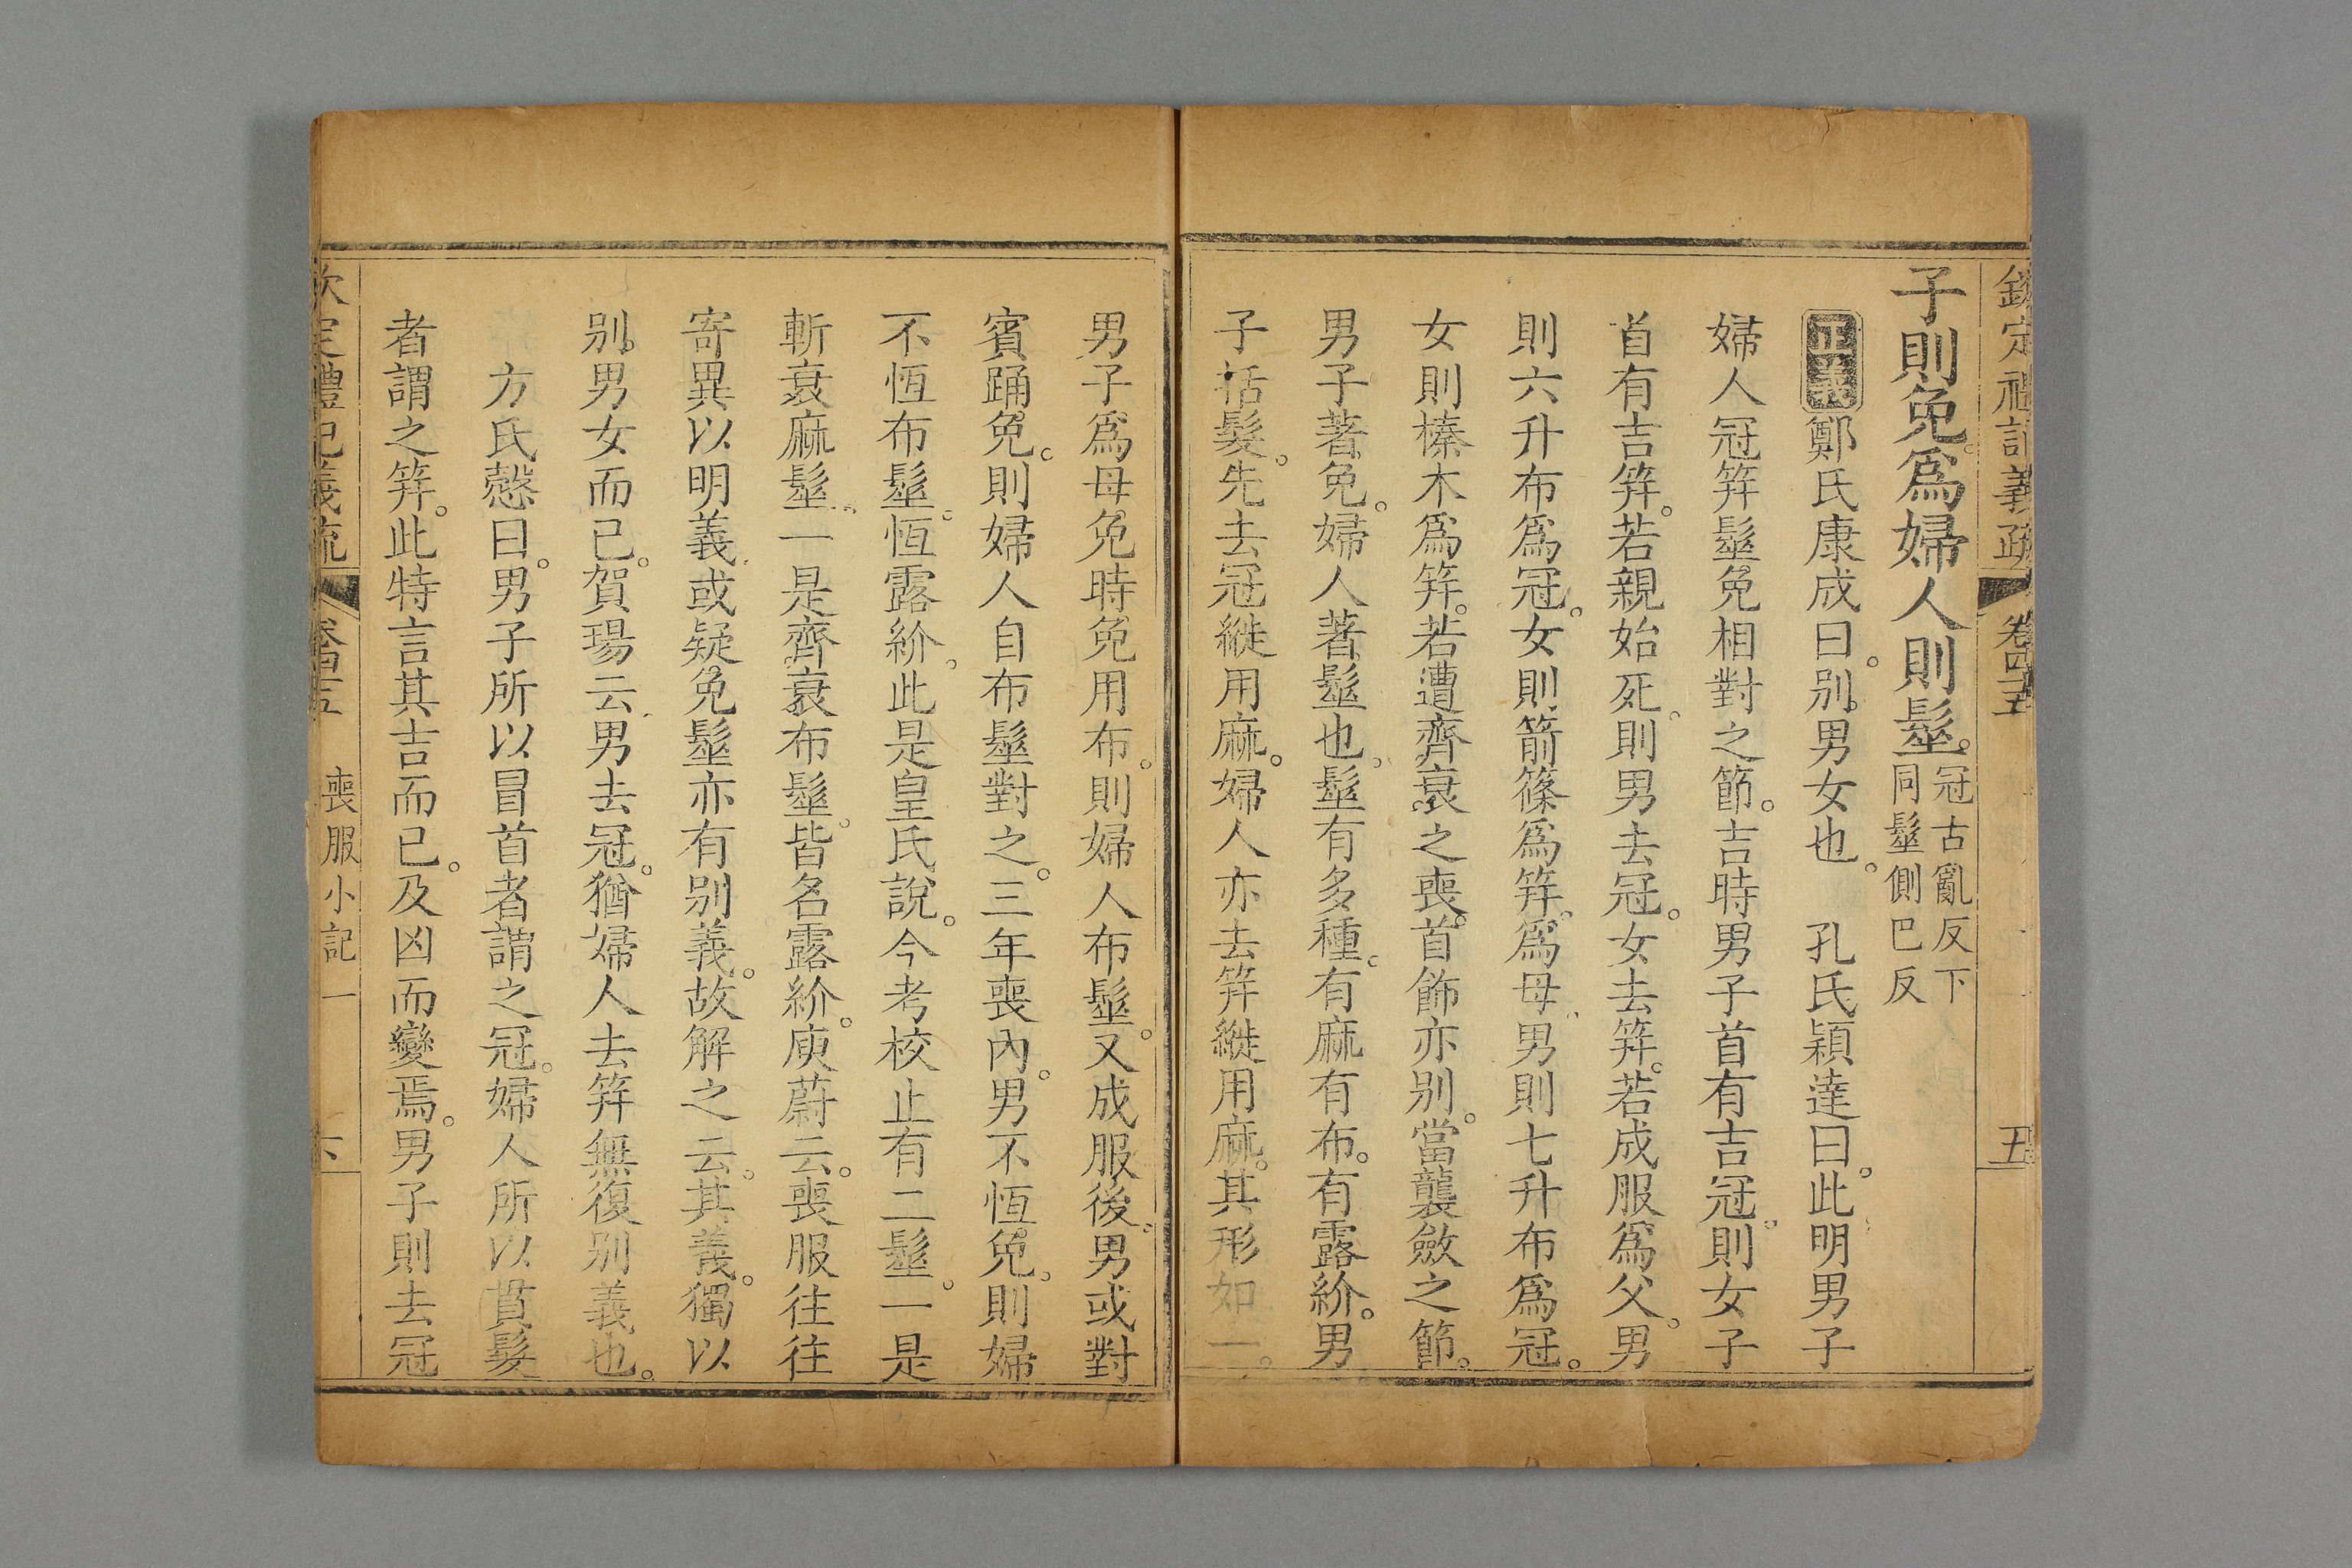 欽定禮記義疏 卷四十五 五
子則免爲婦人則髽。冠古亂反下同髽側巴反
正義鄭氏康成曰。别男女也。 孔氏穎達曰。此明男子
婦人冠笄髽免相對之節。吉時男子首有吉冠。則女子
首有吉笄。若親始死。則男去冠。女去笄。若成服爲父。男
則六升布爲冠。女則箭篠爲笄。爲母。男則七升布爲冠。
女則榛木爲笄。若遭齊衰之喪。首飾亦别。當襲斂之節。
男子著免。婦人著髽也。髽有多種。有麻有布。有露紒。男
子括髮。先去冠縰用麻。婦人亦去笄縰用麻。其形如一。
男子爲母免時免用布。則婦人布髽。又成服後。男或對
賓踊免。則婦人自布髽對之。三年喪內。男不恆免。則婦
不恆布髽。恆露紒。此是皇氏說。今考校止有二髽。一是
斬衰麻髽。一是齊衰布髽。皆名露紒。庾蔚云。喪服往往
寄異以明義。或疑免髽亦有别義。故解之云。其義。獨以
别男女而已。賀瑒云。男去冠。猶婦人去笄無復别義也。
方氏慤曰。男子所以冒首者謂之冠。婦人所以貫髮
者謂之笄。此特言其吉而已。及凶而變焉。男子則去冠
欽定禮記義疏 卷四十五 喪服小記一